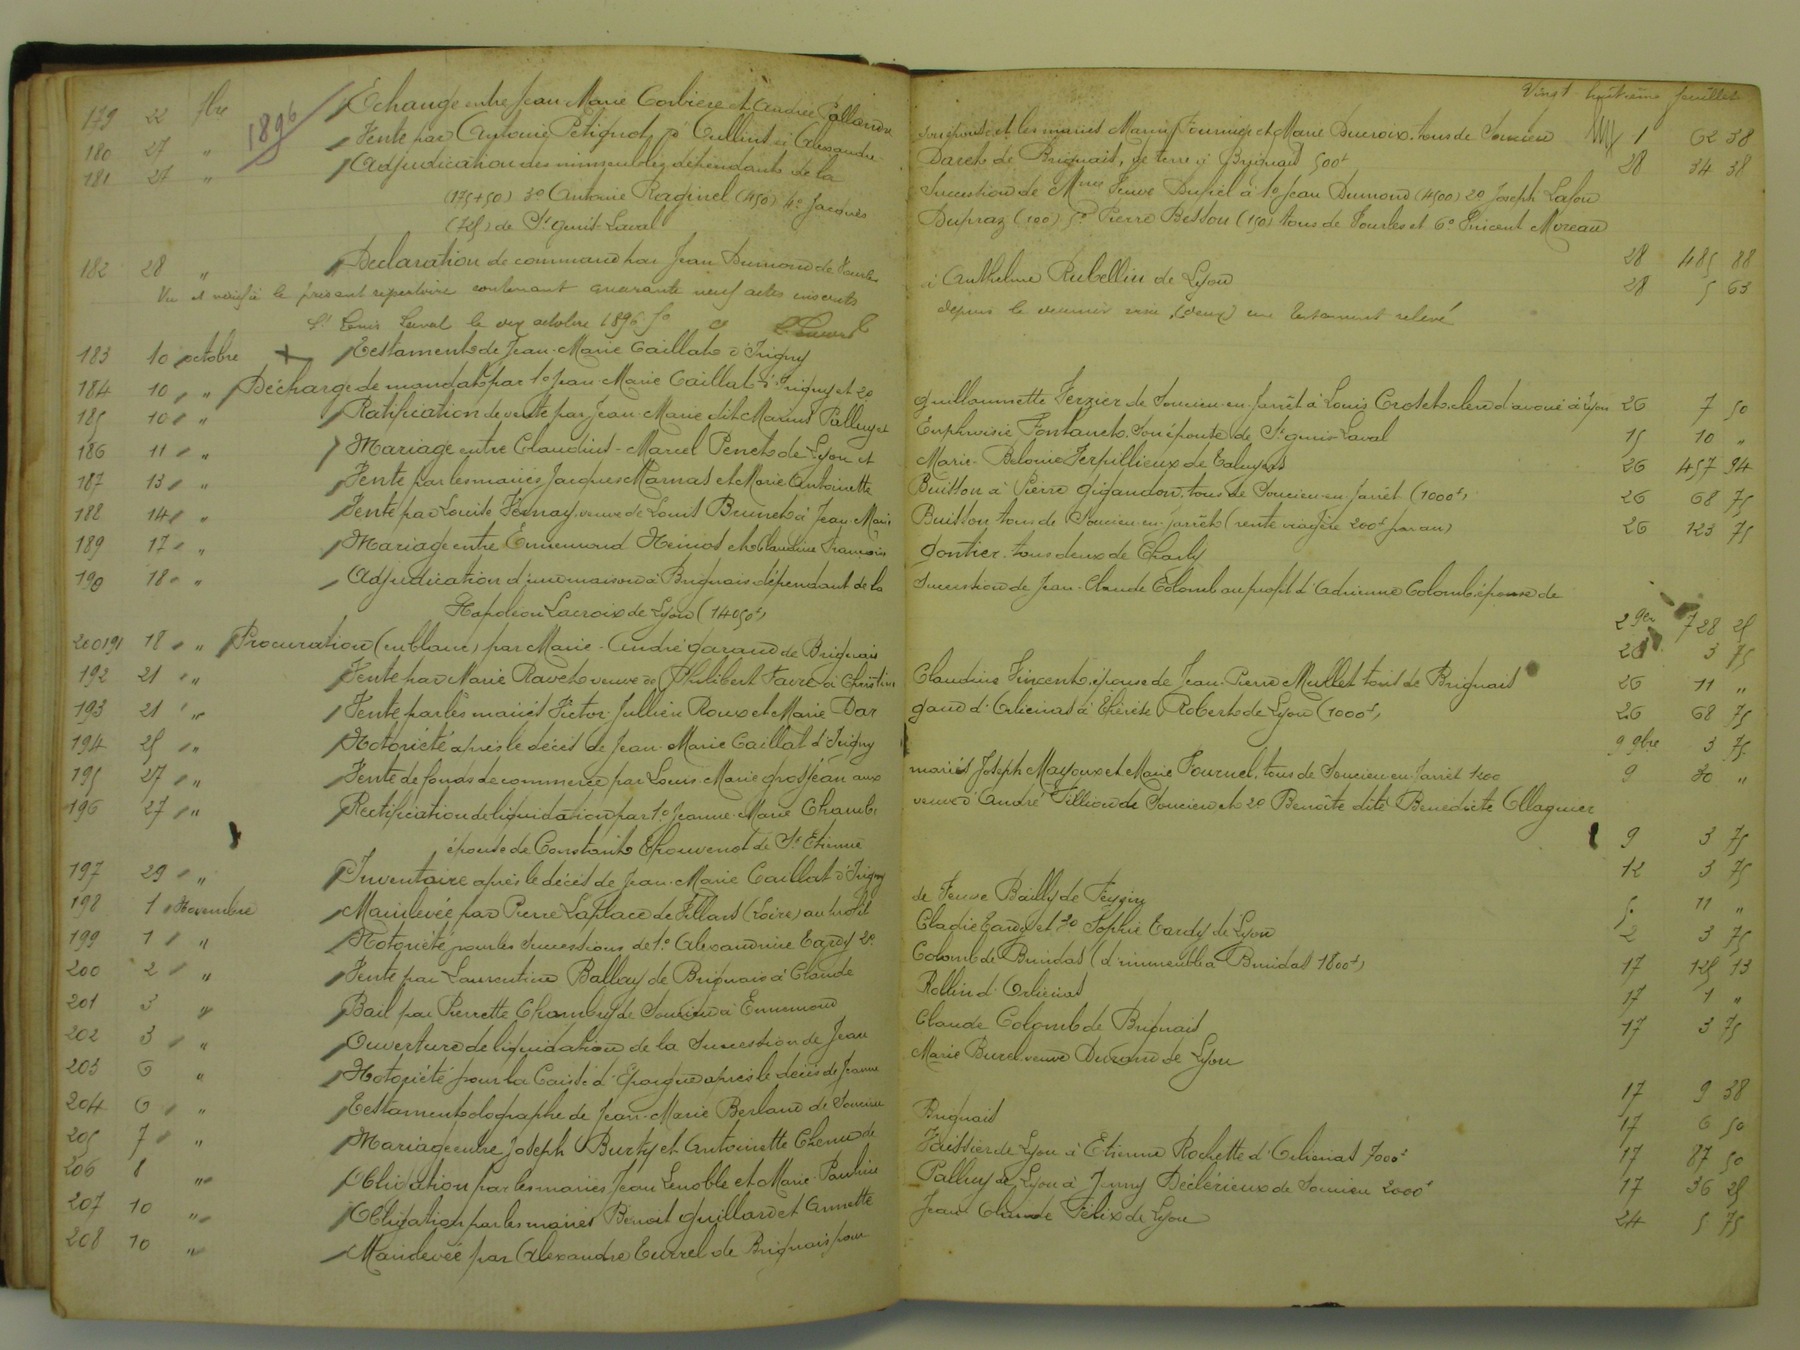 Vingt huitième feuillet
1896
179 22 7bre Echange entre Jean Marie Corbiere et Andrée Pallandre
son épouse et les mariés Marius Fournier et Marie Ducroix, tous de Soucieu 1 62 38
180 27 " Vente par Antoine Petignot, à Cullins à Alexandre
Darets de Brignais, de terre à Brignais 500f 28 34 38
181 27 " Adjudication des immeubles dépendants de la
Succession de Mme Veuve Dupiel à 1o Jean Dumond (4500) 2o Joseph Lafou
(175+50) 3o Antoine Raginel (450) 4o Jacques
Dupraz (100) 5o Pierre Besson (150) tous de Vourles et 6o Vincent Moreau
(725) de St genis-Laval 28 485 88
182 28 " Declaration de command par Jean Dumond de Vourles
à Anthelme Rubellin de Lyon 28 5 63
Vu et vérifié le présent répertoire contenant quarante neuf actes inscrits
depuis le dernier visa, (deux) un testament relevé
St Genis Laval le dix octobre 1896
183 10 octobre Testament de Jean-Marie Caillat d'Irigny
184 10 " Décharge de mandat par 1o Jean Marie Caillat d'Irigny et 2o
guillaumette Verzier de Soucieu-en-Jarrêt à Louis Crotet clerc d'avoué à Lyon 26 7 50
185 10 " Ratification de vente par Jean-Marie dit Marius Palluy et
Euphroisie Fontanet, son épouse, de St genis-Laval 15 10 "
186 11 " Mariage entre Claudius-Marcel Penet de Lyon et
Marie- Terpillieux de Taluyers 26 457 94
187 13 " Vente par les mariés Jacques Marnas et Marie Antoinette
Buisson à Pierre gigandon, tous de Soucieu-en-Jarrêt (1000f) 26 68 75
188 14 " Vente par Louise Vernay veuve de Louis Brunet à Jean-Marie
Buisson tous de Soucieu-en-Jarrêt (rente viagère 200f par an) 26 123 75
189 17 " Mariage entre Ennemond Heinos et Claudine Francoise
gontier, tous deux de Charly
190 18 " Adjudication d'une maison à Brignais dépendant de la
Succession de Jean-Claude Colomb au profit d'Adrienne Colomb épouse de
Napoléon Lacroix de Lyon (14050f) 2 9bre 728 25
200191 18 " Procuration (en blanc) par Marie-André garaud de Brignais 26 3 75
192 21 " Vente par Marie Ravet veuve de Philibert Favre à Christine
Claudine Vincent, épouse de Jean-Pierre Mullet tous de Brignais 26 11 "
193 21 " Vente par les mariés Victor Jullien Roux et Marie Dar
gaud d'Orliénas à Thérèse Robert de Lyon (1000f) 26 68 75
194 25 " Notoriété après le décès de Jean-Marie Caillat d'Irigny 9 9bre 3 75
195 27 " Vente de fonds de commerce par Louis-Marie grosjean aux
mariés Joseph Mayoux et Marie Fournel, tous de Soucieu-en-Jarrêt 1200 9 30 "
196 27 " Rectification de liquidation par 1o Jeanne-Marie Chambe
veuve d'André Villion de Soucieu et 2o Benoîte dite Bénédicte Ollagnier
épouse de Constant Thouvenot de St Etienne 9 3 75
197 29 " Inventaire après le décès de Jean-Marie Caillat d'Irigny 12 3 75
198 1 Novembre Mainlevée par Pierre Laplace de Villars (Loire) au profit
de Veuve Bailly de Feyzin 5 11 "
199 1 " Notoriété pour les successions de 1o Alexandrine Tardy 2o
Cladie Tardy et 3o Sophie Tardy de Lyon 2 3 75
200 2 " Vente par Laurentine Balley de Brignais à Claude
Colomb de Brindas (d'immeuble à Brindas 1800f) 17 125 13
201 3 " Bail par Pierrette Chambry de Soucieu à Ennemond
Rollin d'Orliénas 17 1 "
202 3 " Ouverture de liquidation de la Succession de Jean
Claude Colomb de Brignais 17 3 75
203 6 " Notoriété pour la Caisse d'Epargne après le décès de Jeanne
Marie Burel veuve Durand de Lyon
204 6 " Testament olographe de Jean-Marie Berland de Soucieu 17 9 38
205 7 " Mariage entre Joseph Burty et Antoinette Chenu de
Brignais 17 6 50
206 8 " Obligation par les mariés Jean Lenoble et Marie-Pauline
Vaissier de Lyon à Etienne Rochette d'Orliénas 7000f 17 87 50
207 10 " Obligation par les mariés Benoit guillard et Annette
Palluy de Lyon à Jenny Déclérieux de Soucieu 2000f 17 36 25
208 10 " Mainlevée par Alexandre Turrel de Brignais pour
Jean Claude Félix de Lyon 24 5 75